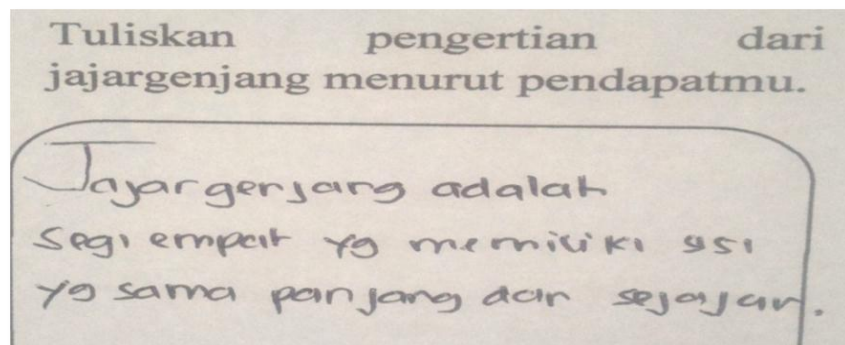 Tuliskan pengertian dari
jajargenjang menurut pendapatmu.
Jajargenjang adalah
segi empat yg memiliki sisi
yg sama panjang dan sejajar.